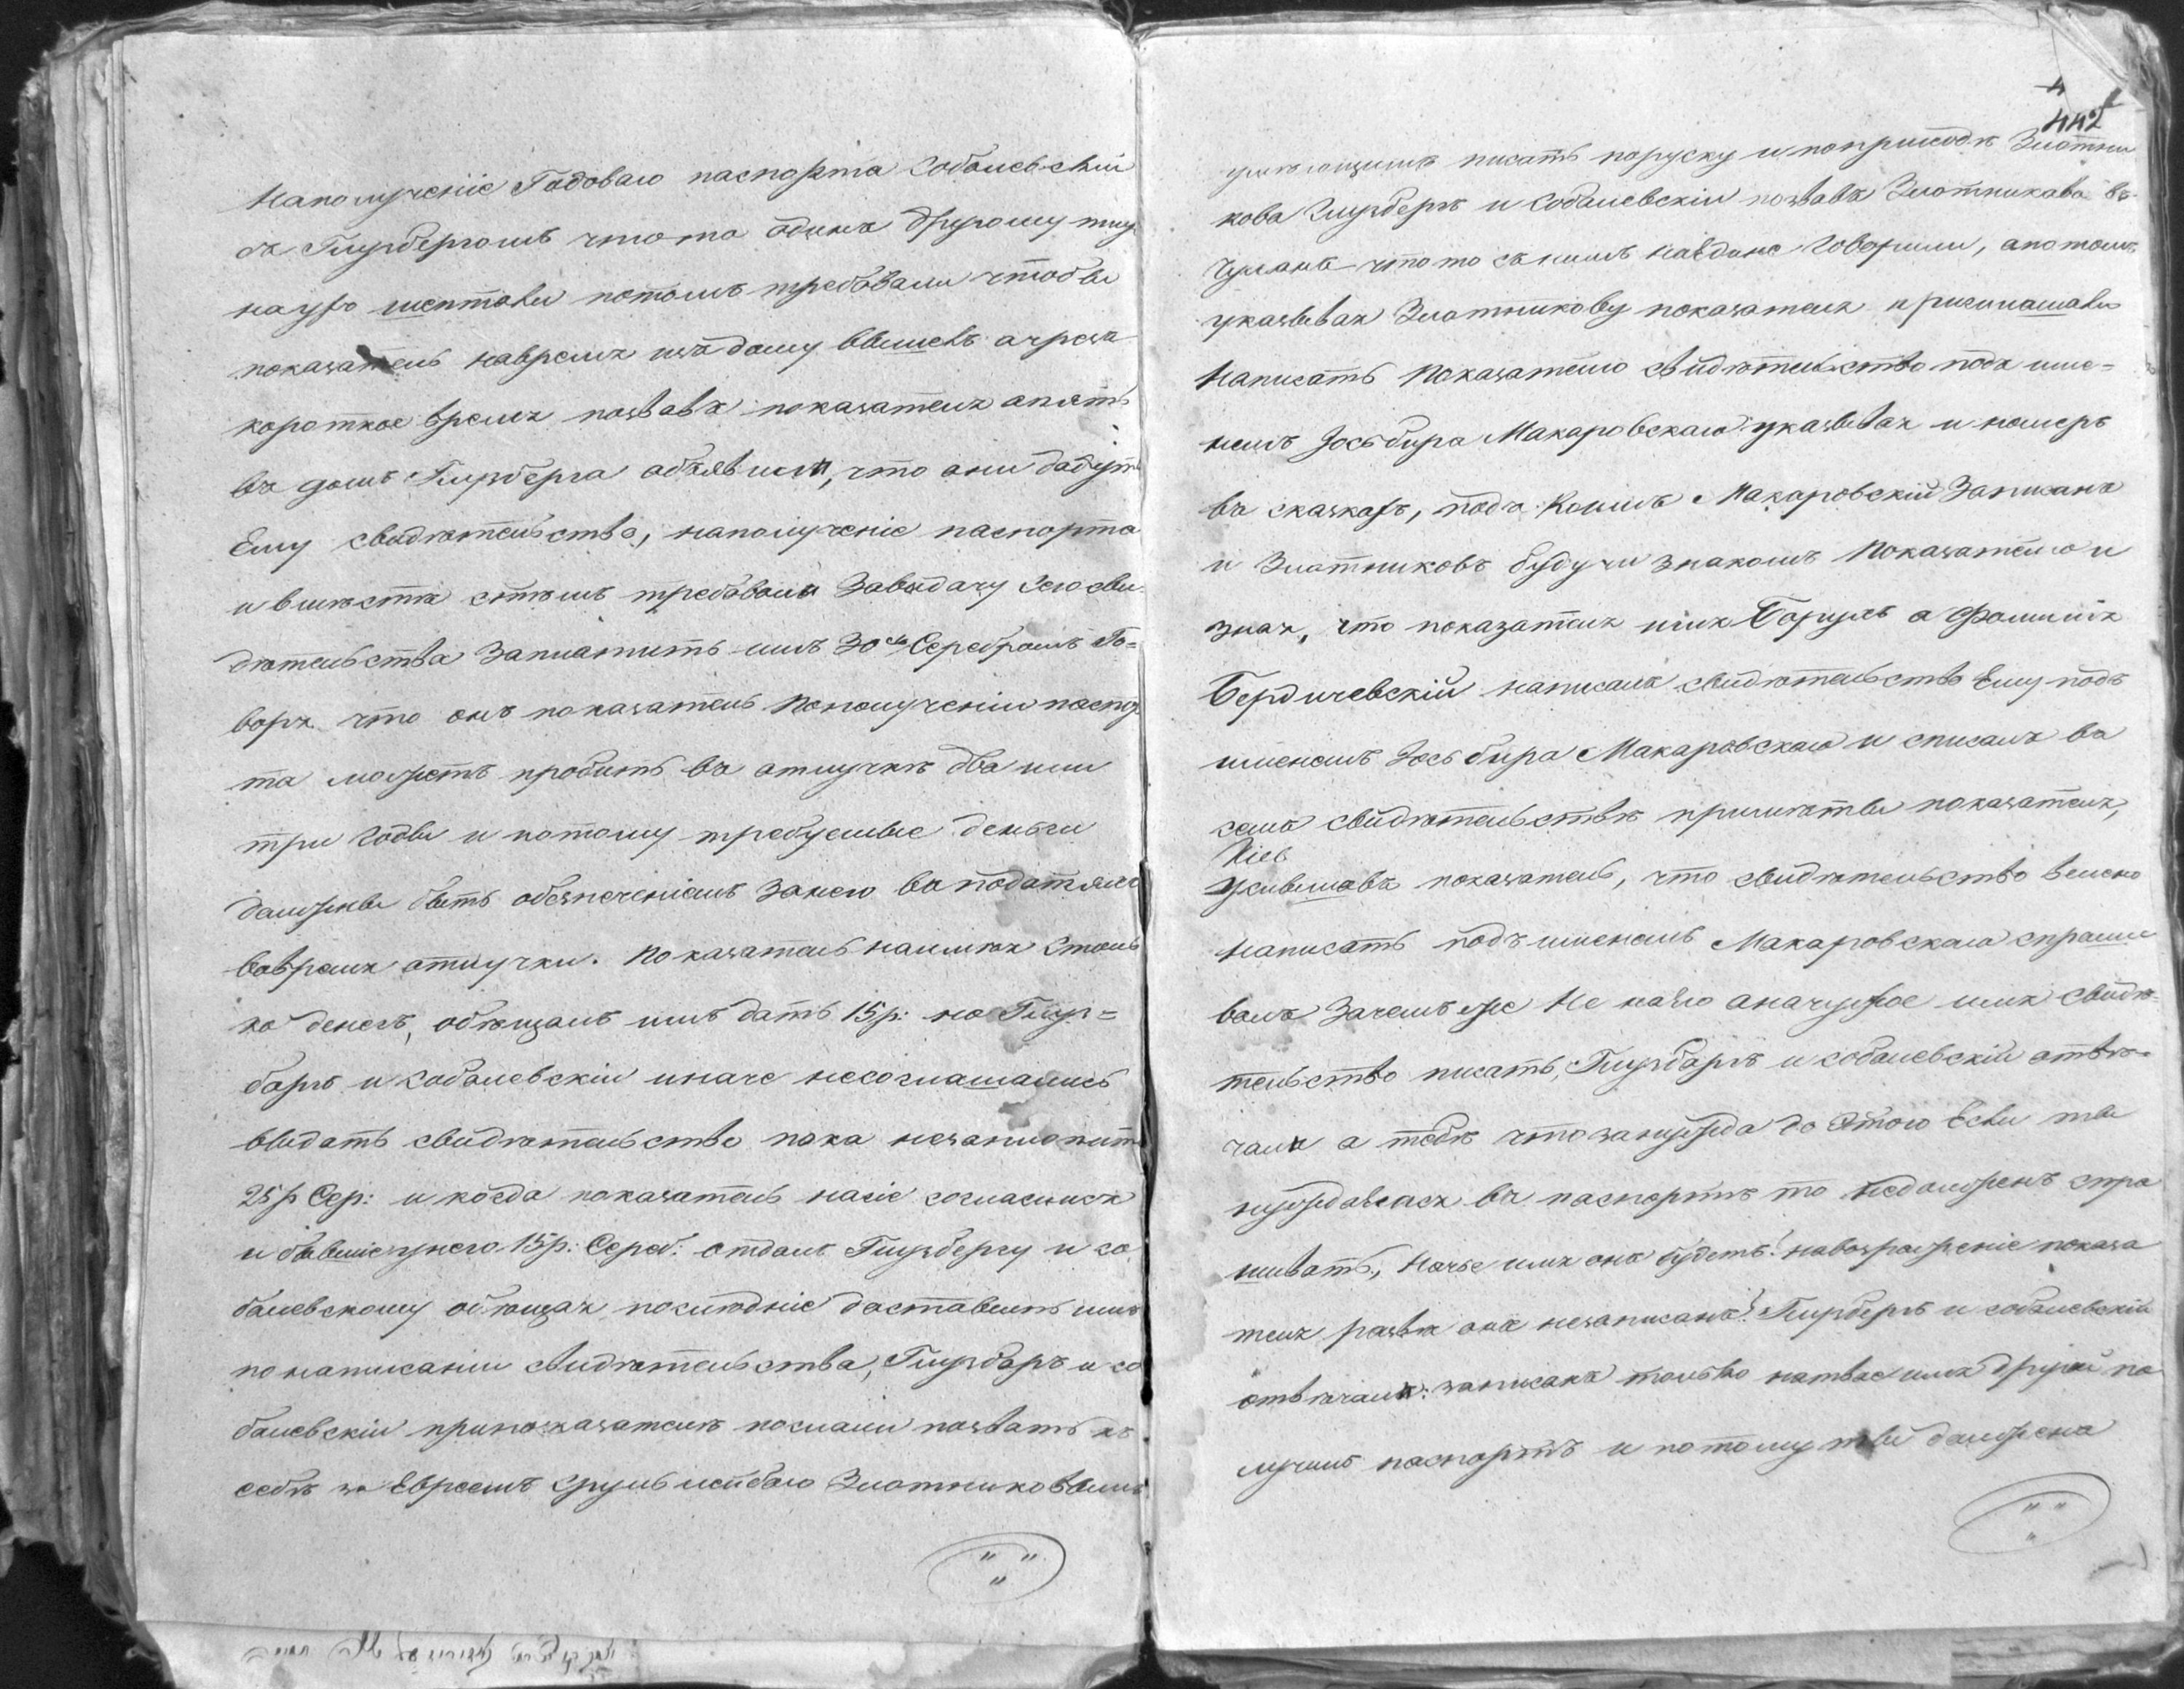 Наполученіе Годоваго паспорта Соболевскій
съ Гинзбергомъ что то одинъ другому
на ухо шептали потомъ требовали чтобы
показатель навремя изъ дому вышелъ а чрезъ
короткое время позвавъ показателя опять
въ домъ Гинзберга объявили, что они дадутъ
Ему свидѣтельство, наполученіе паспорта
и вмѣстѣ стѣмъ требовали Завыдачу сего сви-
дѣтельства Заплатить имъ 30 Серебромъ Го=
воря что онъ показатель Пополученіи паспор
та можетъ пробыть въ отлучкѣ два или
три года и потому требуемые деньги
должны быть обезпеченіемъ Занего въ податяхъ
вовремя отлучки. Показатель неимѣя Столь
ко денегъ, обѣщалъ имъ дать 15 р: но Гинз=
баргъ и Соболевскій иначе несоглашались
выдать свидѣтельство пока незаплотитъ
25 р Сер: и когда показатель насіе согласился
и бывшіе унего 15 р: Сереб: отдалъ Гинзбергу и Со
болевскому обѣщая послѣдніе доставить имъ
по написаніи свидѣтельства, Гинзбаргъ и Со
болевскій припоказателѣ послали позвать къ
себѣ за Евреемъ Сруль Лейбою Злотниковымъ

442
умѣющимъ писать поруску и поприходѣ Злотни
кова Гинзбергъ и Соболевскій позвавъ Злотникова въ
Чуланъ что то съ нимъ наединѣ Говорили, апотомъ
указывая Злотникову показателя приглашали
Написать Показателю свидѣтельство подъ име=
немъ Іось бира Макаровскаго указывая и номеръ
въ сказкахъ, подъ Коимъ Макаровскій Записанъ
и Злотниковъ будучи знакомъ Показателю и
зная, что показателя имя Борухъ а Фамилія
Бердичевскій написалъ свидѣтельство Ему подъ
именемъ Іось бира Макаровскаго и списалъ въ
семъ свидѣтельствѣ примѣты показателя,
Услышавъ показатель, что свидѣтельство велено
Написать подъ именемъ Макаровскаго спраши
валъ Зачемъ же Не наего а начужое имя свидѣ=
тельство писать, Гинзбаргъ и Соболевскій отвѣ=
чали а тебѣ что занужда до Этого Если ты
нуждаешся въ паспортѣ то недолженъ спра
шивать, Начье имя онъ будетъ! навозраженіе показа
теля развѣ онъ незаписанъ? Гинзбергъ и Соболевскій
отвѣчали: записанъ только натвое имя другой по
лучилъ паспортъ и потому ты долженъ